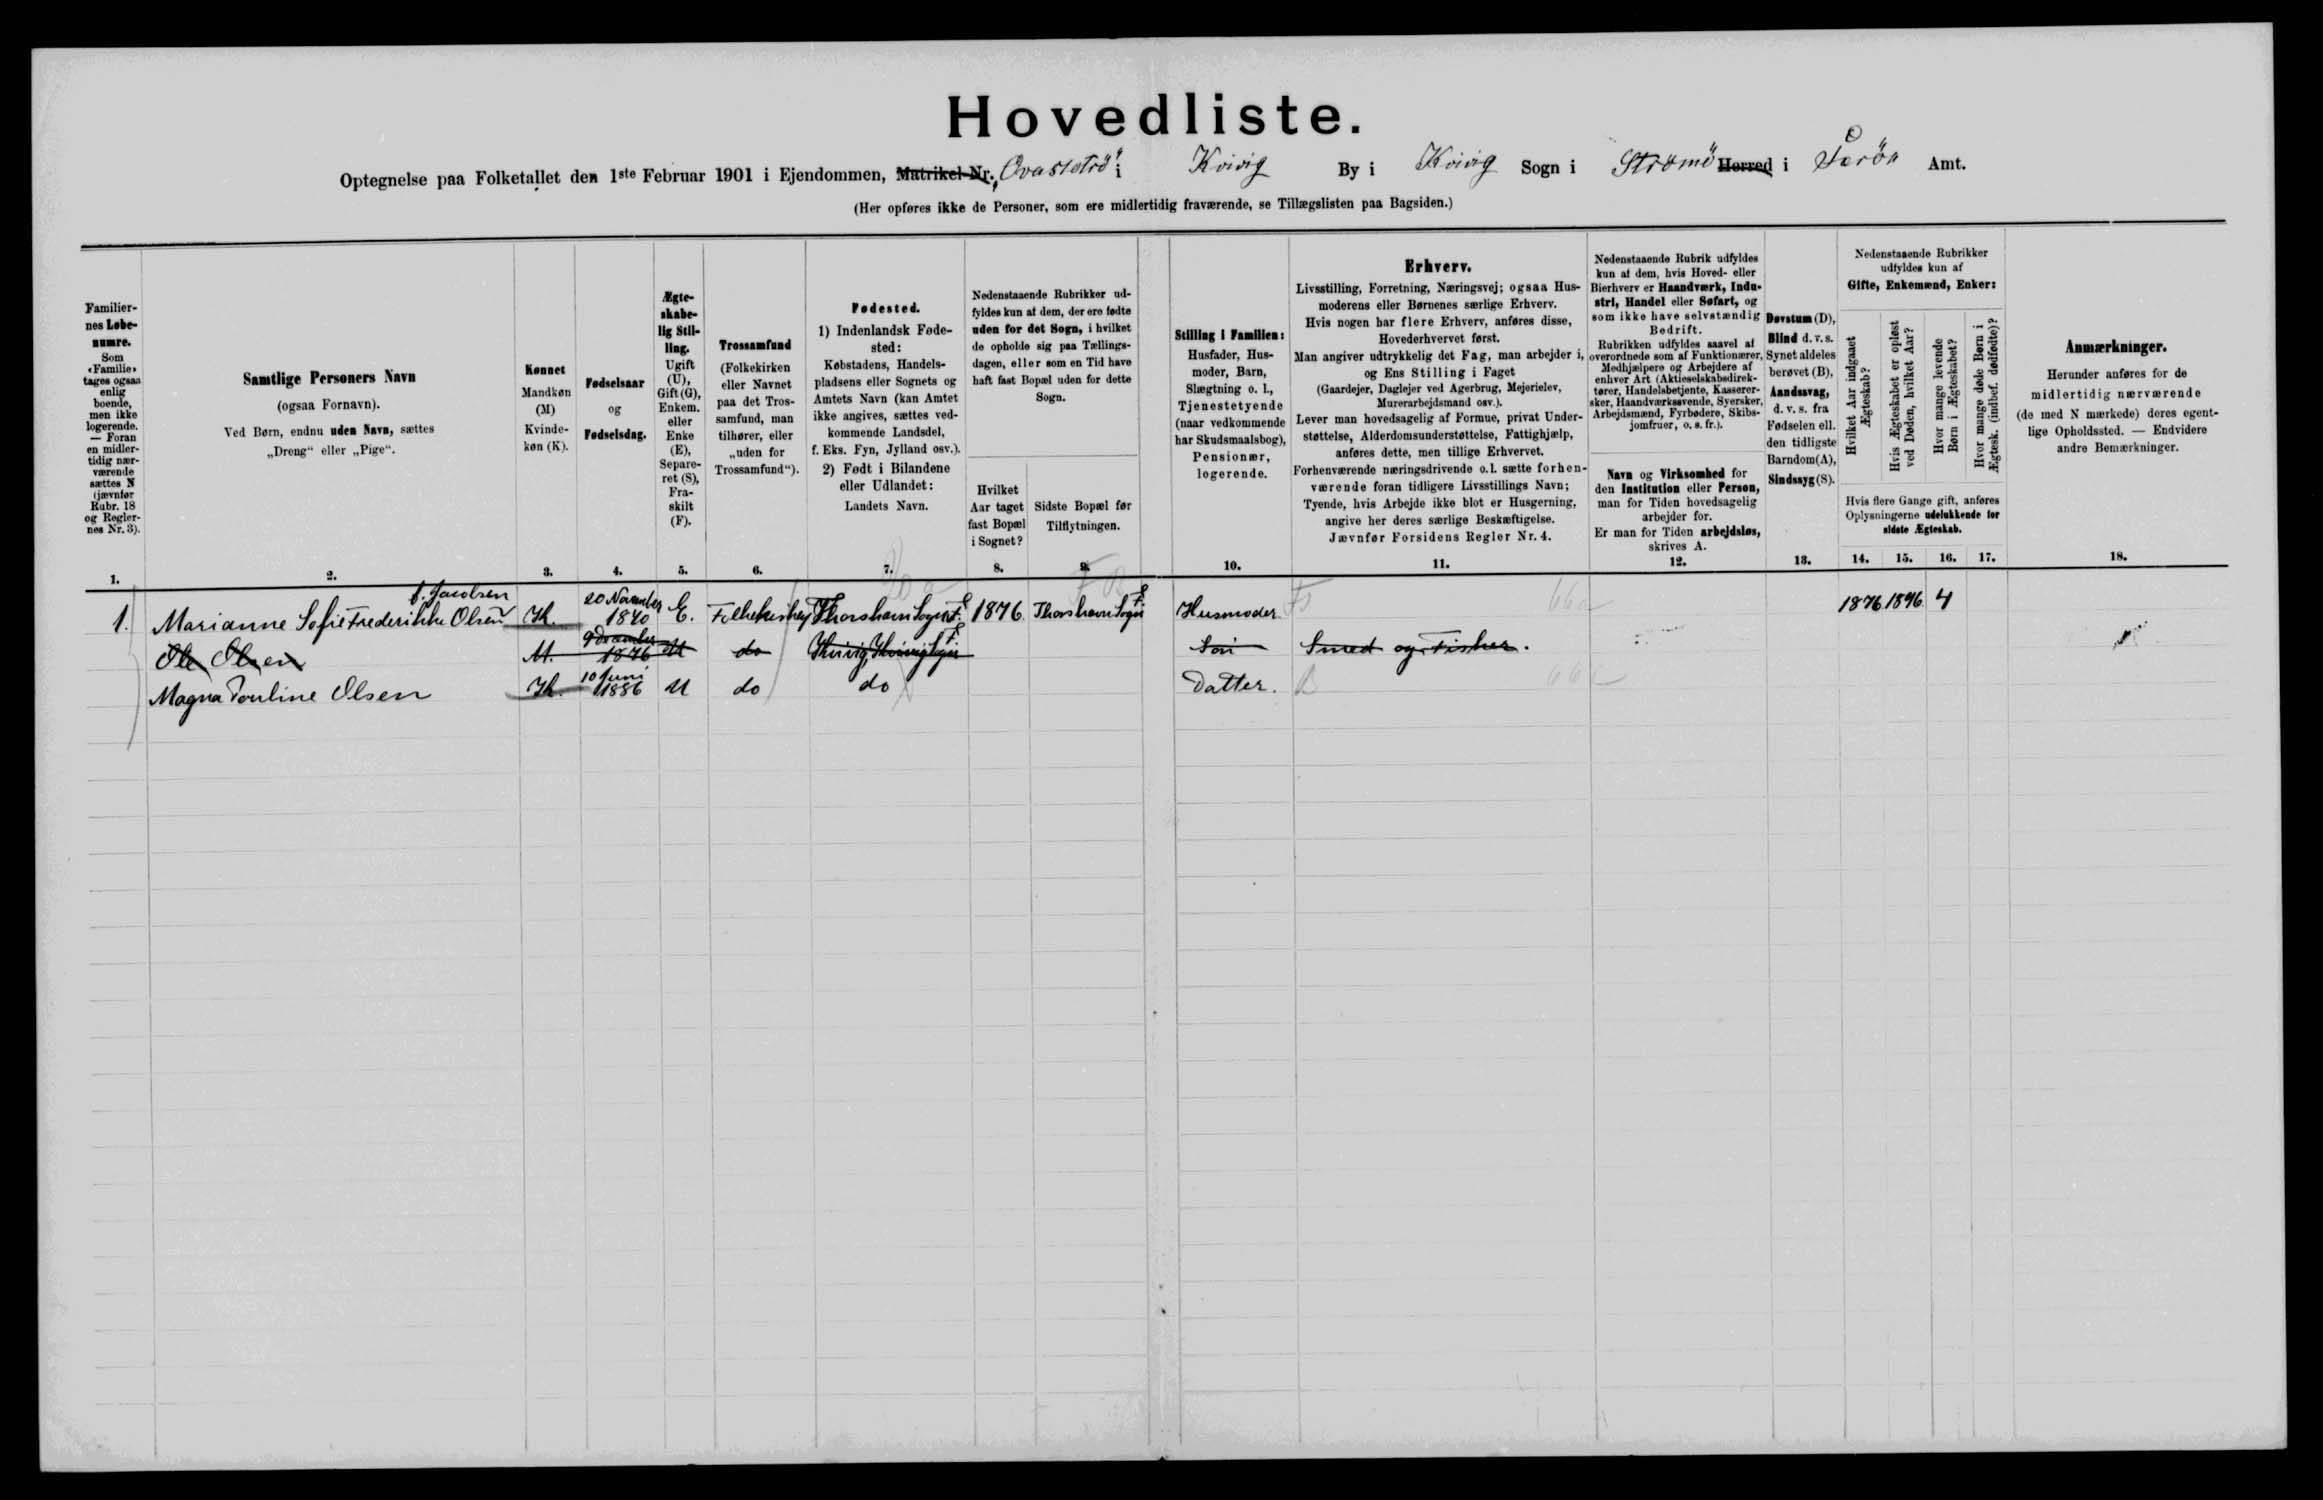 Hovedliste.
Optegnelse paa Folketallet den 1ste Februar 1901 i Ejendommen, Matrikel-Nr., i Kvivig By i Kvivig Sogn i Strømö Herred i Færöe Amt.
(Her opføres ikke de Personer, som ere midlertidig fraværende, se Tillægslisten paa Bagsiden.)
Familier-
nes Løbe-
numre.
Som
«Familie»
tages ogsaa
enlig
boende,
men ikke
logerende.
— Foran
en midler-
tidig nær-
værende
sættes N
(jævnfør
Rubr. 18
og Regler-
nes Nr. 3).
1.
Samtlige Personers Navn
(ogsaa Fornavn).
Ved Børn, endnu uden Navn, sættes
„Dreng“ eller „Pige“.
2.
Kønnet
Mandkøn
(M)
Kvinde-
køn (K).
3.
Fødselsaar
og
Fødselsdag.
4.
Ægte-
skabe-
lig Stil-
ling.
Ugift
(U),
Gift (G),
Enkem.
eller
Enke
(E),
Separe-
ret (S),
Fra-
skilt
(F).
5.
Trossamfund
(Folkekirken
eller Navnet
paa det Tros-
samfund, man
tilhører, eller
„uden for
Trossamfund“).
6.
Fødested.
1) Indenlandsk Føde-
sted:
Købstadens, Handels-
pladsens eller Sognets og
Amtets Navn (kan Amtet
ikke angives, sættes ved-
kommende Landsdel,
f. Eks. Fyn, Jylland osv.).
2) Født i Bilandene
eller Udlandet:
Landets Navn.
7.
Nedenstaaende Rubrikker ud-
fyldes kun af dem, der ere fødte
uden for det Sogn, i hvilket
de opholde sig paa Tællings-
dagen, eller som en Tid have
haft fast Bopæl uden for dette
Sogn.
Hvilket
Aar taget
fast Bopæl
i Sognet?
8.
Sidste Bopæl før
Tilflytningen.
9.
Stilling i Familien:
Husfader, Hus-
moder, Barn,
Slægtning o. l.,
Tjenestetyende
(naar vedkommende
har Skudsmaalsbog),
Pensionær,
logerende.
10.
Erhverv.
Livsstilling, Forretning, Næringsvej; ogsaa Hus-
moderens eller Børnenes særlige Erhverv.
Hvis nogen har flere Erhverv, anføres disse,
Hovederhvervet først.
Man angiver udtrykkelig det Fag, man arbejder i,
og Ens Stilling i Faget
(Gaardejer, Daglejer ved Agerbrug, Mejerielev,
Murerarbejdsmand osv.).
Lever man hovedsagelig af Formue, privat Under-
støttelse, Alderdomsunderstøttelse, Fattighjælp,
anføres dette, men tillige Erhvervet.
Forhenværende næringsdrivende o. l. sætte forhen-
værende foran tidligere Livsstillings Navn;
Tyende, hvis Arbejde ikke blot er Husgerning,
angive her deres særlige Beskæftigelse.
Jævnfør Forsidens Regler Nr. 4.
11.
Nedenstaaende Rubrik udfyldes
kun af dem, hvis Hoved- eller
Bierhverv er Haandværk, Indu-
stri, Handel eller Søfart, og
som ikke have selvstændig
Bedrift.
Rubrikken udfyldes saavel af
overordnede som af Funktionærer,
Medhjælpere og Arbejdere af
enhver Art (Aktieselskabsdirek-
tører, Handelsbetjente, Kasserer-
sker, Haandværkssvende, Syersker,
Arbejdsmænd, Fyrbødere, Skibs-
jomfruer, o. s. fr.).
Navn og Virksomhed for
den Institution eller Person,
man for Tiden hovedsagelig
arbejder for.
Er man for Tiden arbejdsløs,
skrives A.
12.
Døvstum (D),
Blind d. v. s.
Synet aldeles
berøvet (B),
Aandssvag,
d. v. s. fra
Fødselen ell.
den tidligste
Barndom (A),
Sindssyg (S).
13.
Nedenstaaende Rubrikker
udfyldes kun af
Gifte, Enkemænd, Enker:
Hvilket Aar indgaaet
Ægteskab?
Hvis Ægteskabet er opløst
ved Døden, hvilket Aar?
Hvor mange levende
Børn i Ægteskabet?
Hvor mange døde Børn i
Ægtesk. (indbef. dødfødte)?
Hvis flere Gange gift, anføres
Oplysningerne udelukkende for
sidste Ægteskab.
14. 15. 16. 17.
Anmærkninger.
Herunder anføres for de
midlertidig nærværende
(de med N mærkede) deres egent-
lige Opholdssted. — Endvidere
andre Bemærkninger.
18.
f. Jacobsen
1. Marianne Sofie Frederikke Olsen K. 20 November 1840 E. Folkekirken Thorshavn Sogn F. 1876 Thorshavn Sogn F. Husmoder 1876 1896 4
Ole Olsen M. 9 December 1876 U do Kvivig, Kvivig Sogn F. Søn Smed og Fisker.
Magna Pouline Olsen K. 10 Juni 1886 U do do Datter.